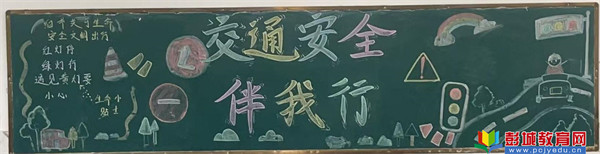 珍爱美好生命
安全文明出行
红灯停
绿灯行
遇见黄灯要
小心
生命小
贴士
交通安全
伴我行
彭城教育网
www.pcjyedu.cn